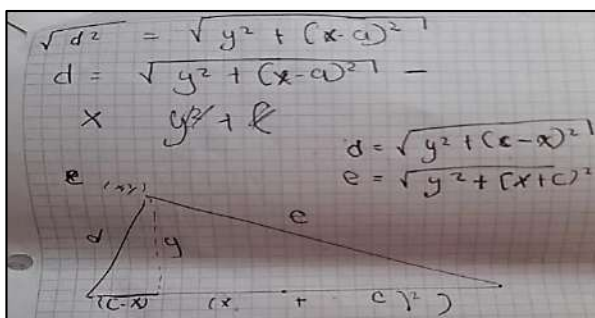 √d² = √y² + (x-a)²
d = √y² + (x-a)² -
x y² +
d = √y² + (c-x)²
e = √y² + (x+c)²
(xy)
d y e
(c-x) (x + c)²)